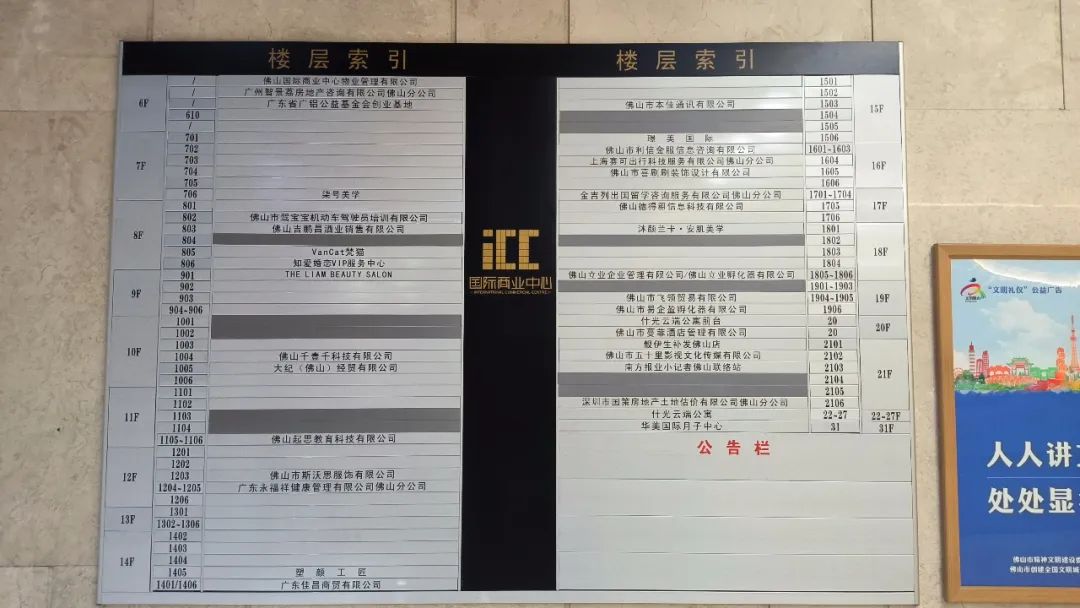 楼层索引
6F
/ 佛山国际商业中心物业管理有限公司
/ 广州智景荔房地产咨询有限公司佛山分公司
/ 广东省广铝公益基金会创业基地
610
/
7F
701
702
703
704
705
706 柒号美学
8F
801
802 佛山市驾宝宝机动车驾驶员培训有限公司
803 佛山吉鹏昌酒业销售有限公司
804
805 VanCat梵猫
806 知爱婚恋VIP服务中心
9F
901 THE LIAM BEAUTY SALON
902
903
904-906
10F
1001
1002
1003
1004 佛山千壹千科技有限公司
1005 大纪（佛山）经贸有限公司
1006
11F
1101
1102
1103
1104
1105-1106 佛山起思教育科技有限公司
12F
1201
1202
1203 佛山市斯沃思服饰有限公司
1204-1205 广东永福祥健康管理有限公司佛山分公司
1206
13F
1301
1302-1306
14F
1402
1403
1404
1405 塑颜工匠
1401/1406 广东佳昌商贸有限公司
icc
国际商业中心
INTERNATIONAL COMMERCIAL CENTRE
楼层索引
1501 15F
1502
佛山市本佳通讯有限公司 1503
1504
1505
璟美国际 1506
佛山市利信金服信息咨询有限公司 1601-1603 16F
上海赛可出行科技服务有限公司佛山分公司 1604
佛山市喜刷刷装饰设计有限公司 1605
1606
金吉列出国留学咨询服务有限公司佛山分公司 1701-1704 17F
佛山德得新信息科技有限公司 1705
1706
沐颜兰卡·安肌美学 1801 18F
1802
1803
1804
佛山立业企业管理有限公司/佛山立业孵化器有限公司 1805-1806
1901-1903 19F
佛山市飞领贸易有限公司 1904-1905
佛山市易企盈孵化器有限公司 1906
什光云端公寓前台 20 20F
佛山市蔓菲酒店管理有限公司 20
毅伊生补发佛山店 2101 21F
佛山市五十里影视文化传媒有限公司 2102
南方报业小记者佛山联络站 2103
2104
2105
深圳市国策房地产土地估价有限公司佛山分公司 2106
什光云端公寓 22-27 22-27F
华美国际月子中心 31 31F
公告栏
“文明礼仪”公益广告
人人讲
处处显
佛山市精神文明建设
佛山市创建全国文明城